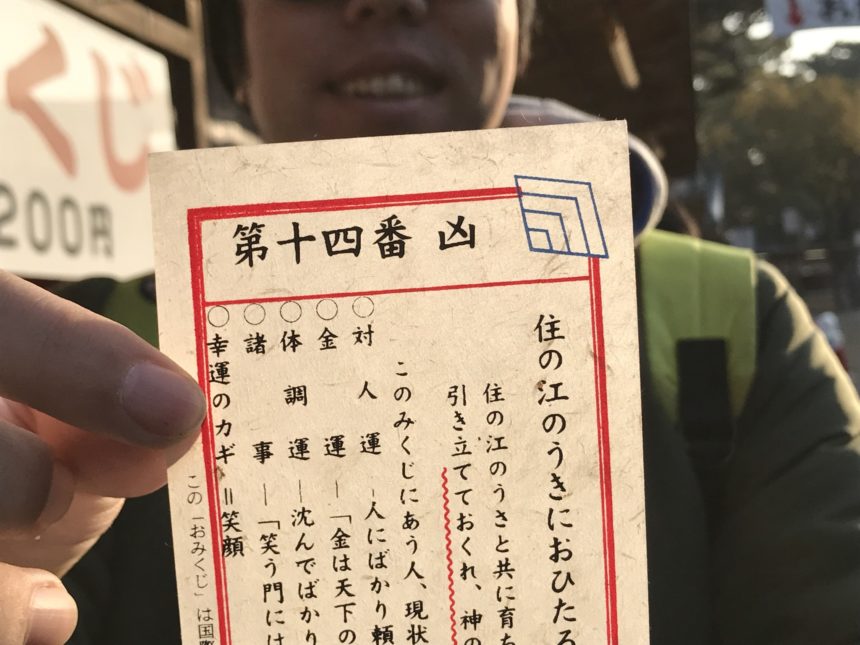 くじ
200円
第十四番 凶
住の江のうきにおひたる
住の江のうさと共に育ち
引き立てておくれ、神の
このみくじにあう人、現状
○対人運―人にばかり頼
○金運―「金は天下の
○体調運―沈んでばかり
○諸事―「笑う門には
○幸運のカギ＝笑顔
この「おみくじ」は国際